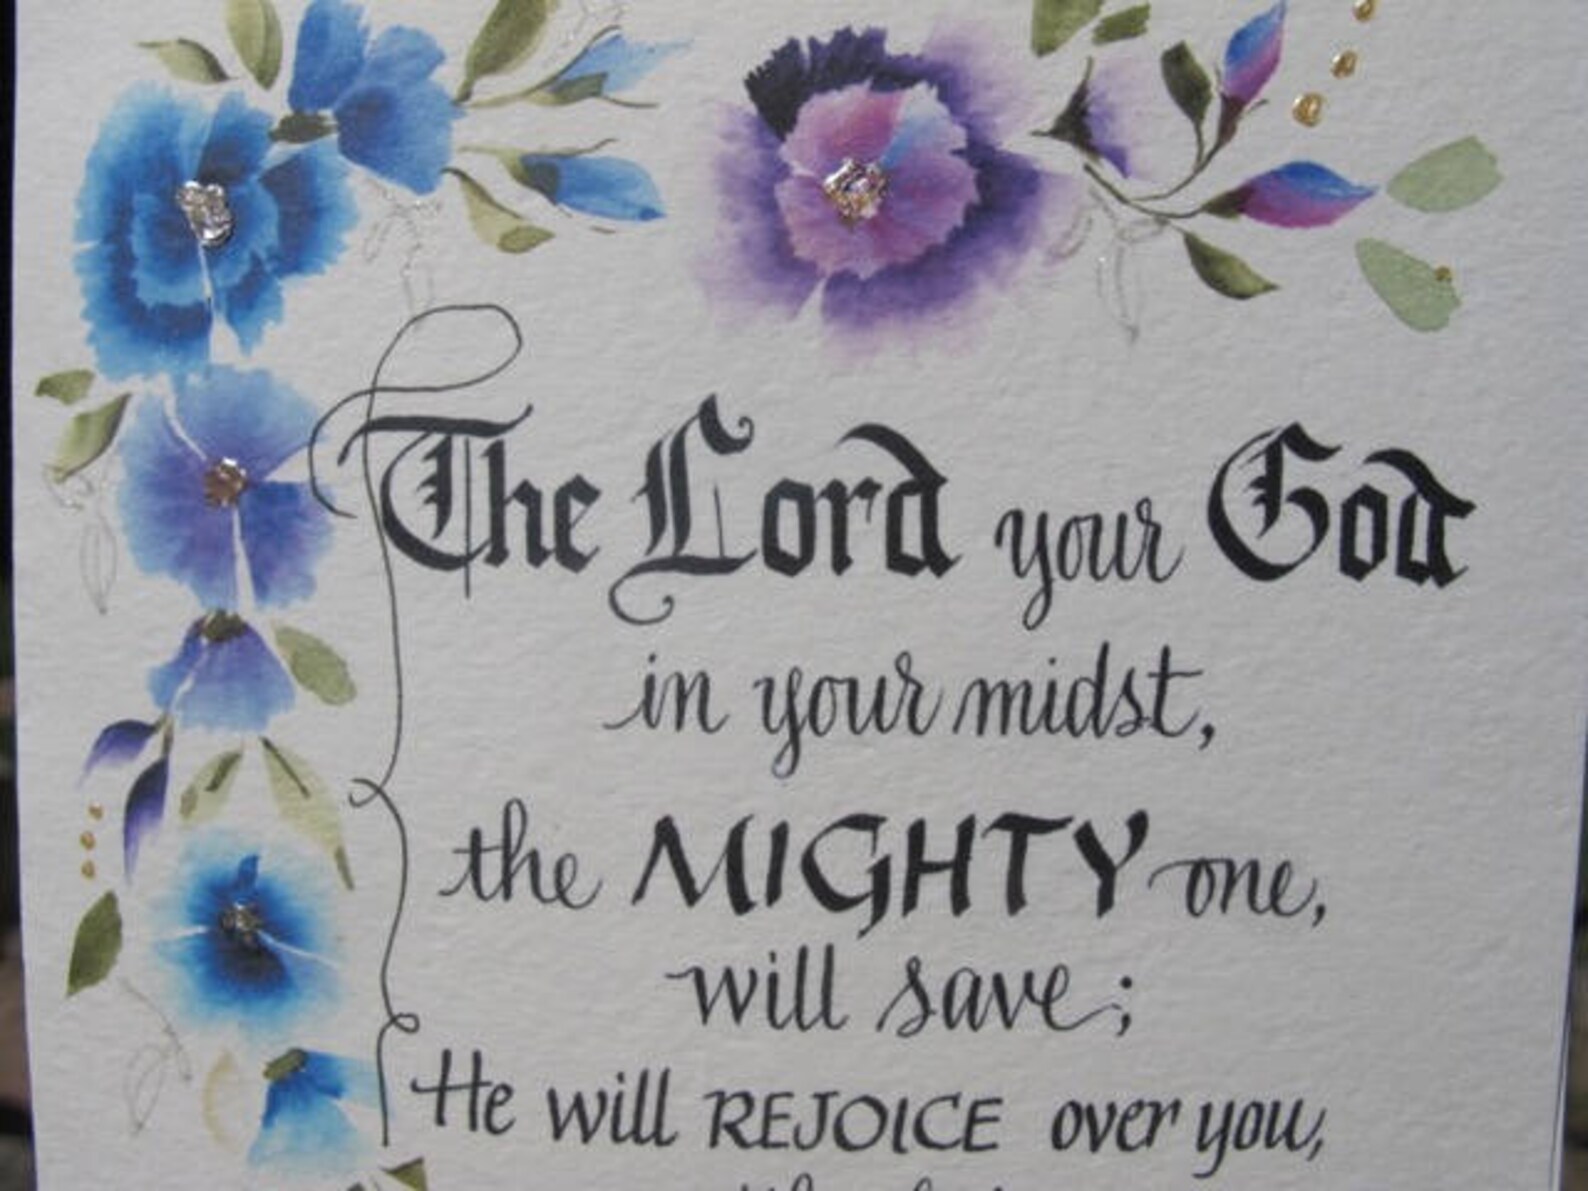 The Lord your God
in your midst,
the MIGHTY one,
will save;
He will REJOICE over you,